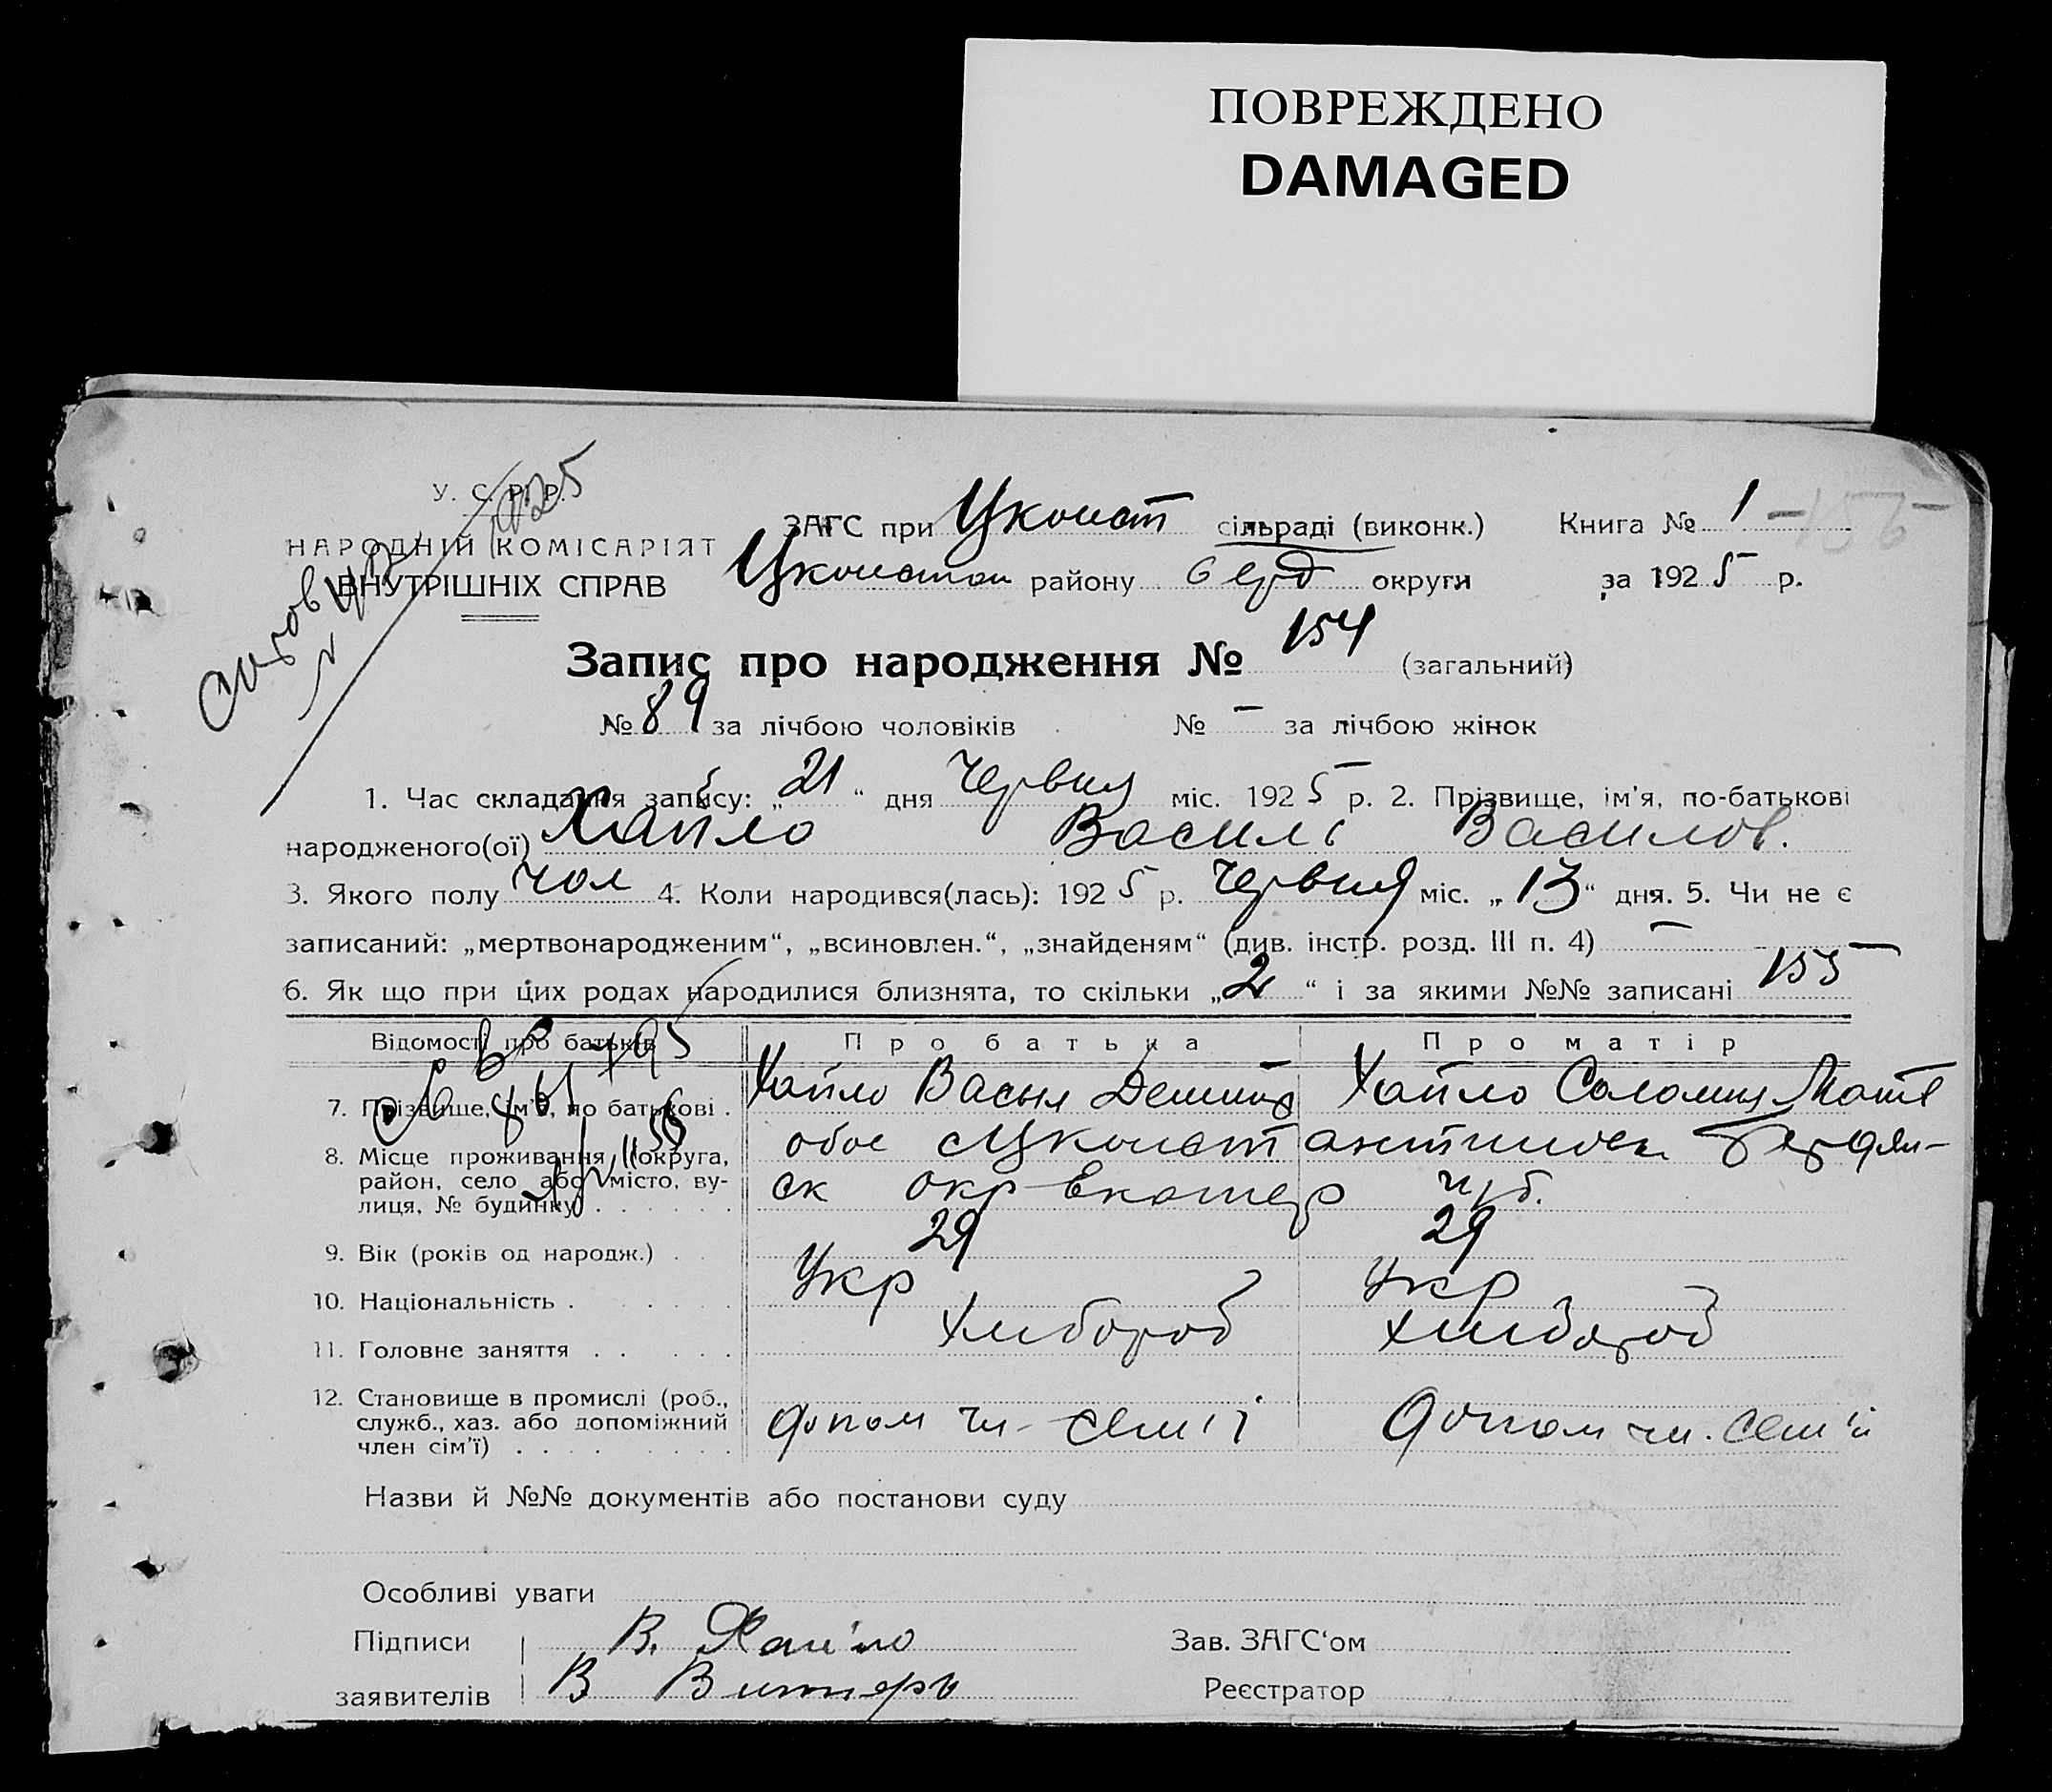 ПОВРЕЖДЕНО
DAMAGED
У. С. Р. Р. 1925
НАРОДНІЙ КОМІСАРІЯТ
ВНУТРІШНІХ СПРАВ
ЗАГС при Цконст сільраді (виконк.) Книга № 1 —
району округи за 1925 р.
Запис про народження № 154 (загальний)
№ 89 за лічбою чоловіків № — за лічбою жінок
1. Час складання запису: „21“ дня Червня міс. 1925 р. 2. Прізвище, ім'я, по-батькові
народженого(ої) Хайло Василь Василов.
3. Якого полу чол 4. Коли народився(лась): 1925 р. Червня міс. „13“ дня. 5. Чи не є
записаний: „мертвонародженим“, „всиновлен.“, „знайденям“ (див. інстр. розд. III п. 4) —
6. Як що при цих родах народилися близнята, то скільки „2“ і за якими №№ записані 155
Відомості про батьків Про батька Про матір
7. Прізвище, ім'я, по батькові . Хайло Васыл Хайло Соломия
8. Місце проживання (округа, обое
район, село або місто, ву- ск окр Екатер губ.
лиця, № будинку) . . . . . .
9. Вік (років од народж.) . 29 29
10. Національність . Укр Укр
11. Головне заняття . . Хлибороб Хлибороб
12. Становище в промислі (роб.,
служб., хаз. або допоміжний допом чл - семії допом чл. сем'ї
член сім'ї) . . . .
Назви й №№ документів або постанови суду
Особливі уваги
Підписи В. Хайло Зав. ЗАГС'ом
заявителів В Реєстратор